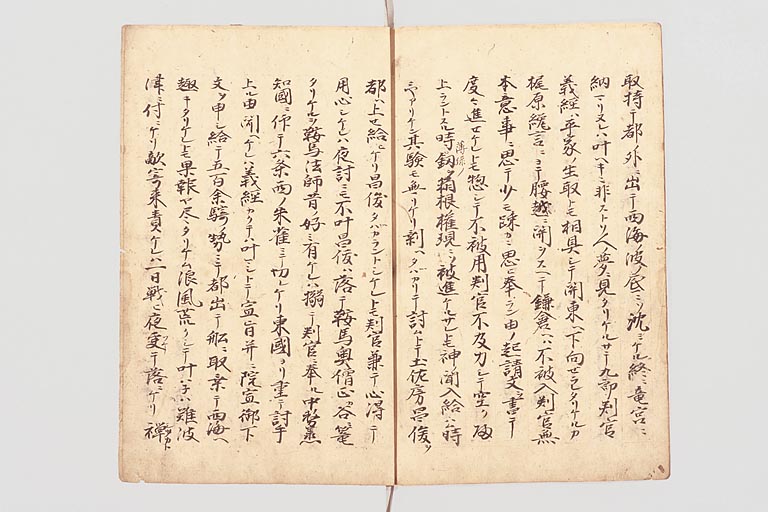 取持テ都ノ外ヘ出テ西海ノ波ノ底ニソ沈ミケル終ニ竜宮ニ
納マリヌレハ叶ヘキニ非ストソ人ノ夢ニ見タリケルサテ九郎判官
義経ハ平家ノ生取トモ相具シテ関東ヘ下向セラレタリケルカ
梶原讒言ニヨテ腰越ニ関ヲスヘテ鎌倉ヘハ不被入判官無
本意事ニ思テ少モ踈カニ思ヒ奉ラヌ由ノ起請文ヲ書テ
度々進セケレトモ惣シテ不被用判官不及力シテ空ク
上ラントスル時薄緑ノ釼ヲ箱根権現ニソ被進ケルサレトモ神ノ聞入給ハヌ時
ニヤアリケン其験モ無リケリ剰ヘタハカリテ討ムトテ土佐房昌俊ヲ
都ヘ上セ給ヒケリ昌俊タハカラントシケレトモ判官兼テ心得テ
用心シケレハ夜討ニモ不叶昌俊ハ落テ鞍馬奥僧正カ谷ニ篭
タリケルヲ鞍馬法師昔ノ好ミ有ケレハ搦テ判官ニ奉ル中
知國ニ作テ六条西ノ朱雀ニテ切レケリ東國ヨリ重テ討手
上ル由聞ヘケレハ義経カクテハ叶マシトテ宣旨并ニ院宣御下
文ヲ申シ給テ五百余騎ノ勢ニテ都出テ船ニ取乗テ西海ヘ
趣キタリケレトモ果報ヤ尽タリケム浪風荒クシテ叶ハネハ難波
津ニ付ニケリ敵寄来責ケレハ一日戦ヒ夜更テ落ニケリ禅